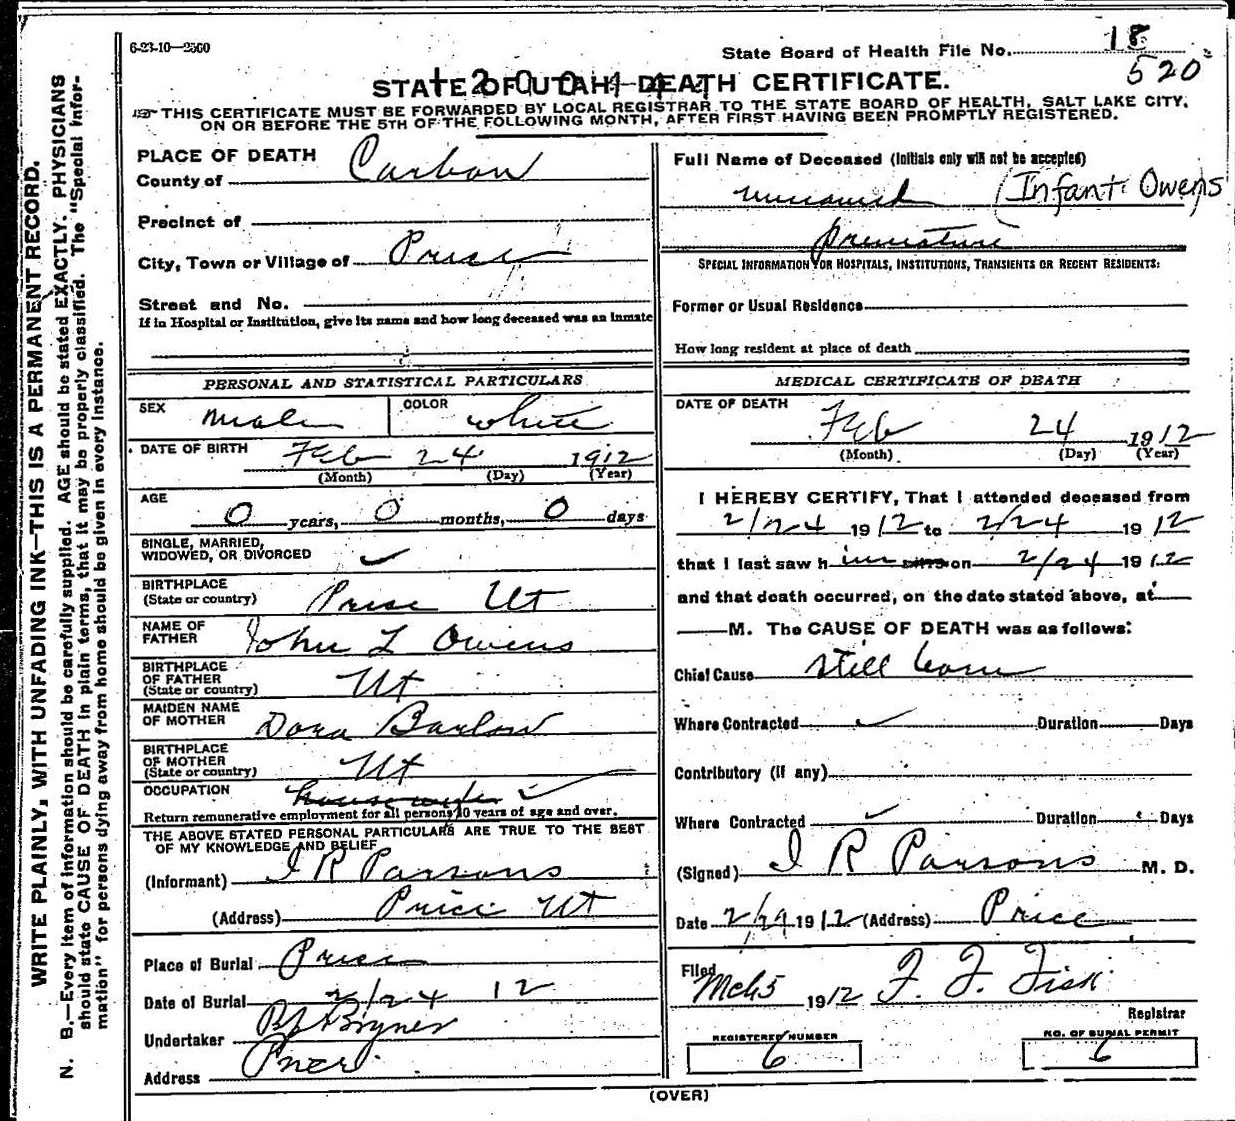 6-23-10—2560
State Board of Health File No. 18
520
STATE OF UTAH—DEATH CERTIFICATE.
THIS CERTIFICATE MUST BE FORWARDED BY LOCAL REGISTRAR TO THE STATE BOARD OF HEALTH, SALT LAKE CITY,
ON OR BEFORE THE 5TH OF THE FOLLOWING MONTH, AFTER FIRST HAVING BEEN PROMPTLY REGISTERED.
WRITE PLAINLY, WITH UNFADING INK—THIS IS A PERMANENT RECORD.
N. B.—Every item of information should be carefully supplied. AGE should be stated EXACTLY. PHYSICIANS
should state CAUSE OF DEATH in plain terms, that it may be properly classified. The "Special Infor-
mation" for persons dying away from home should be given in every instance.
PLACE OF DEATH
County of Carbon
Precinct of
City, Town or Village of Price
Street and No.
If in Hospital or Institution, give its name and how long deceased was an inmate
PERSONAL AND STATISTICAL PARTICULARS
SEX Male COLOR White
DATE OF BIRTH Feb 24 1912
(Month) (Day) (Year)
AGE
0 years, 0 months, 0 days
SINGLE, MARRIED,
WIDOWED, OR DIVORCED
BIRTHPLACE
(State or country) Price Ut
NAME OF
FATHER John L Owens
BIRTHPLACE
OF FATHER
(State or country) Ut
MAIDEN NAME
OF MOTHER Dora Barlow
BIRTHPLACE
OF MOTHER
(State or country) Ut
OCCUPATION housewife
Return remunerative employment for all persons 10 years of age and over.
THE ABOVE STATED PERSONAL PARTICULARS ARE TRUE TO THE BEST
OF MY KNOWLEDGE AND BELIEF
(Informant) I R Parsons
(Address) Price Ut
Place of Burial Price
Date of Burial 2/24 12
Undertaker Bryner
Address Price
Full Name of Deceased (Initials only will not be accepted)
unnamed (Infant Owens
premature
SPECIAL INFORMATION FOR HOSPITALS, INSTITUTIONS, TRANSIENTS OR RECENT RESIDENTS:
Former or Usual Residence
How long resident at place of death
MEDICAL CERTIFICATE OF DEATH
DATE OF DEATH
Feb 24 1912
(Month) (Day) (Year)
I HEREBY CERTIFY, That I attended deceased from
2/24 1912 to 2/24 1912
that I last saw him alive on 2/24 1912
and that death occurred, on the date stated above, at
M. The CAUSE OF DEATH was as follows:
Chief Cause still born
Where Contracted Duration Days
Contributory (if any)
Where Contracted Duration Days
(Signed) I R Parsons M. D.
Date 2/29 1912 (Address) Price
Filed Mch 5 1912 F. F. Fisk
Registrar
REGISTERED NUMBER
6
NO. OF BURIAL PERMIT
6
(OVER)